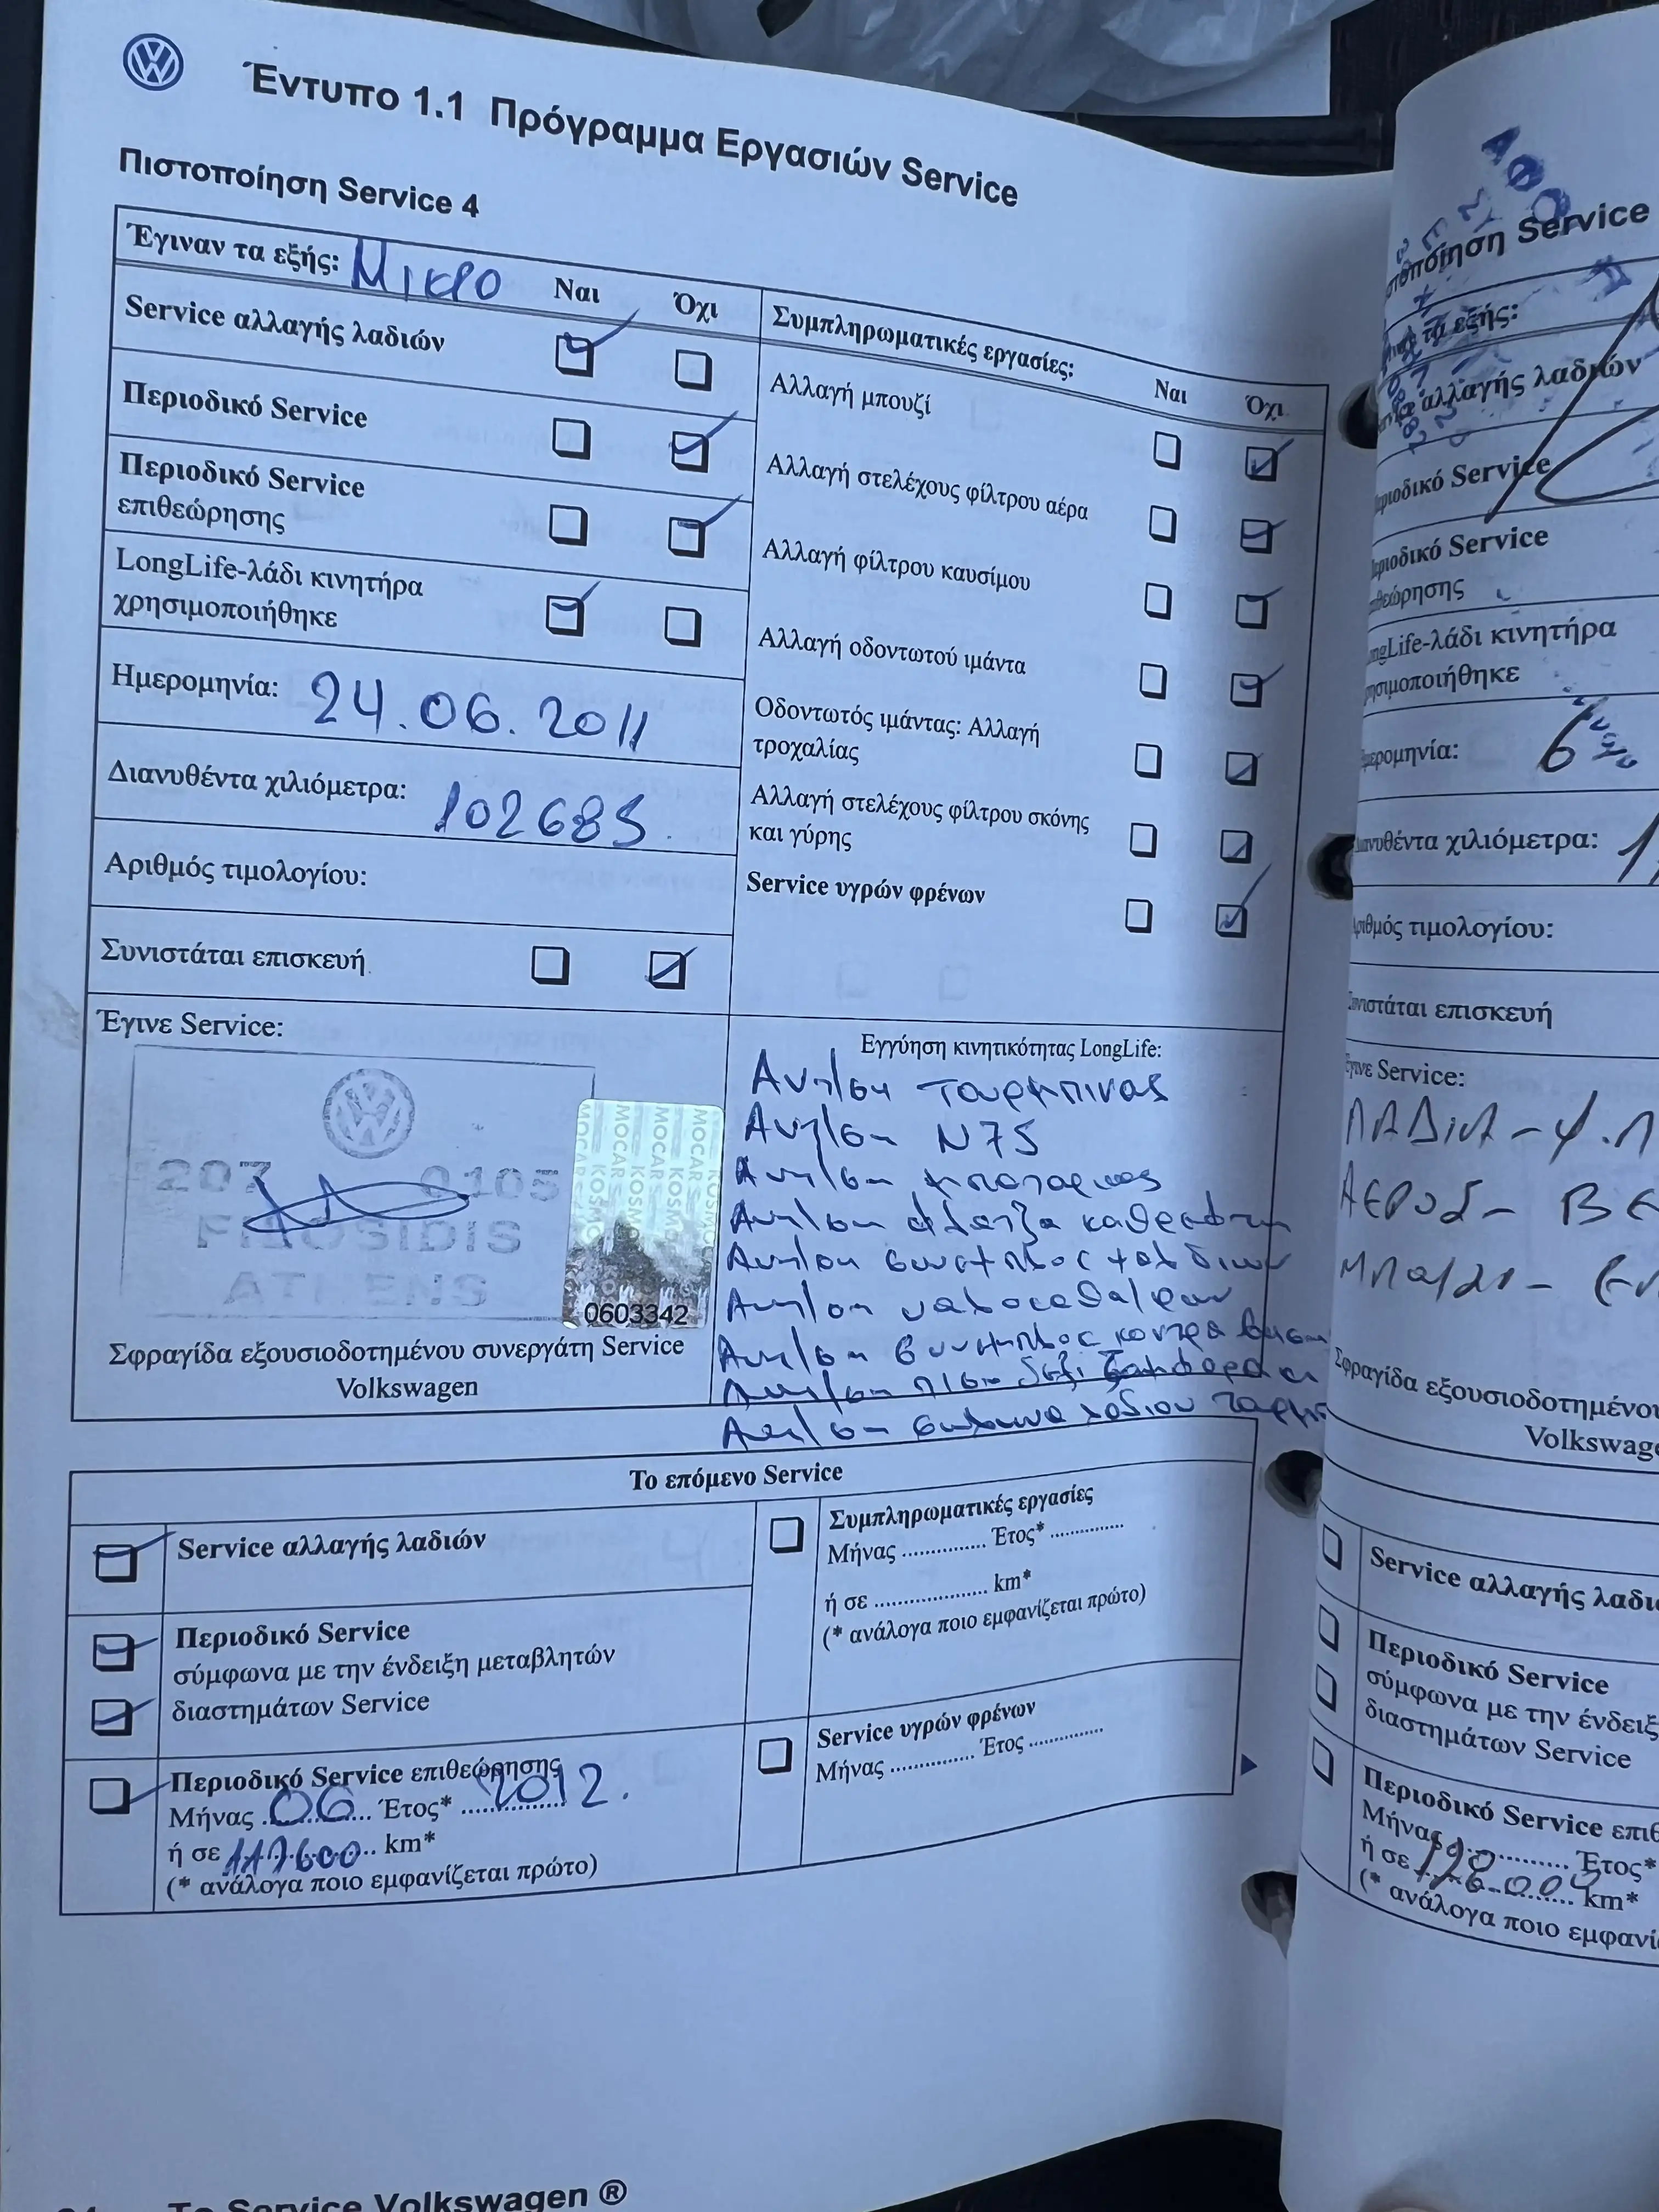 Έντυπο 1.1 Πρόγραμμα Εργασιών Service
Πιστοποίηση Service 4
Έγιναν τα εξής: ΜΙΚΡΟ Ναι Όχι
Service αλλαγής λαδιών
Περιοδικό Service
Περιοδικό Service
επιθεώρησης
LongLife-λάδι κινητήρα
χρησιμοποιήθηκε
Ημερομηνία: 24.06.2011
Διανυθέντα χιλιόμετρα: 102685
Αριθμός τιμολογίου:
Συνιστάται επισκευή
Συμπληρωματικές εργασίες:
Ναι Όχι
Αλλαγή μπουζί
Αλλαγή στελέχους φίλτρου αέρα
Αλλαγή φίλτρου καυσίμου
Αλλαγή οδοντωτού ιμάντα
Οδοντωτός ιμάντας: Αλλαγή
τροχαλίας
Αλλαγή στελέχους φίλτρου σκόνης
και γύρης
Service υγρών φρένων
Έγινε Service:
207 0105
ATHENS
MOCAR KOSMO
0603342
Σφραγίδα εξουσιοδοτημένου συνεργάτη Service
Volkswagen
Εγγύηση κινητικότητας LongLife:
Αντ/ση τουρμπινας
Αντ/ση N75
Αντ/ση μπαταριας
Αντ/ση φλατζα
Αντ/ση
Αντ/ση υαλοκαθα/ρων
Αντ/ση κοντρα
Αντ/ση δεξι
Αντ/ση σωληνα λαδιου
Το επόμενο Service
Service αλλαγής λαδιών
Περιοδικό Service
σύμφωνα με την ένδειξη μεταβλητών
διαστημάτων Service
Περιοδικό Service επιθεώρησης
Μήνας 06 Έτος* 2012.
ή σε 117600 km*
(* ανάλογα ποιο εμφανίζεται πρώτο)
Συμπληρωματικές εργασίες
Μήνας ............... Έτος* ..............
ή σε .................... km*
(* ανάλογα ποιο εμφανίζεται πρώτο)
Service υγρών φρένων
Μήνας ............... Έτος ..............
Το Service Volkswagen ®
Service
τα εξής:
αλλαγής λαδιών
Service
Service
LongLife-λάδι κινητήρα
6
χιλιόμετρα: 1
τιμολογίου:
επισκευή
Service:
ΛΑΔΙΑ - Φ.Λ
ΑΕΡΟΣ -
ΜΠΟΥΖΙ -
Σφραγίδα
Volkswage
Service αλλαγής
Περιοδικό Service
σύμφωνα με την
διαστημάτων Service
Περιοδικό Service
Μήνας ............ Έτος*
ή σε km*
(* ανάλογα ποιο